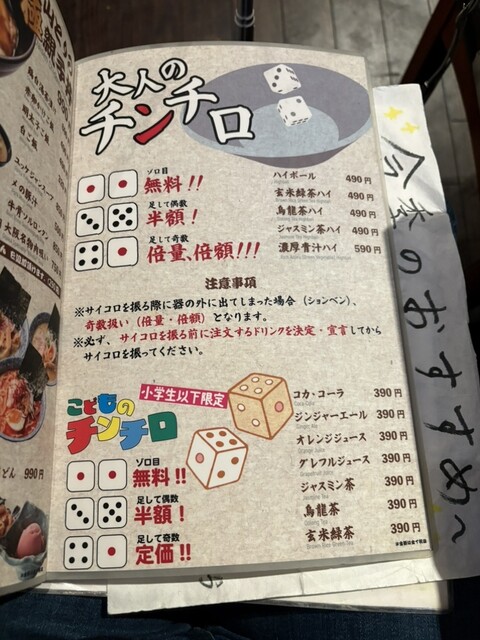 大人の
チンチロ
ゾロ目
無料!!
足して偶数
半額!
足して奇数
倍量、倍額!!!
ハイボール 490円
玄米緑茶ハイ 490円
烏龍茶ハイ 490円
ジャスミン茶ハイ 490円
濃厚青汁ハイ 590円
注意事項
※サイコロを振る際に器の外に出てしまった場合（ションベン）、
奇数扱い（倍量・倍額）となります。
※必ず、サイコロを振る前に注文するドリンクを決定・宣言してから
サイコロを振ってください。
こどもの
チンチロ
小学生以下限定
ゾロ目
無料!!
足して偶数
半額!
足して奇数
定価!!
コカ・コーラ 390円
ジンジャーエール 390円
オレンジジュース 390円
グレフルジュース 390円
ジャスミン茶 390円
烏龍茶 390円
玄米緑茶 390円
今季のおすすめ~
990円